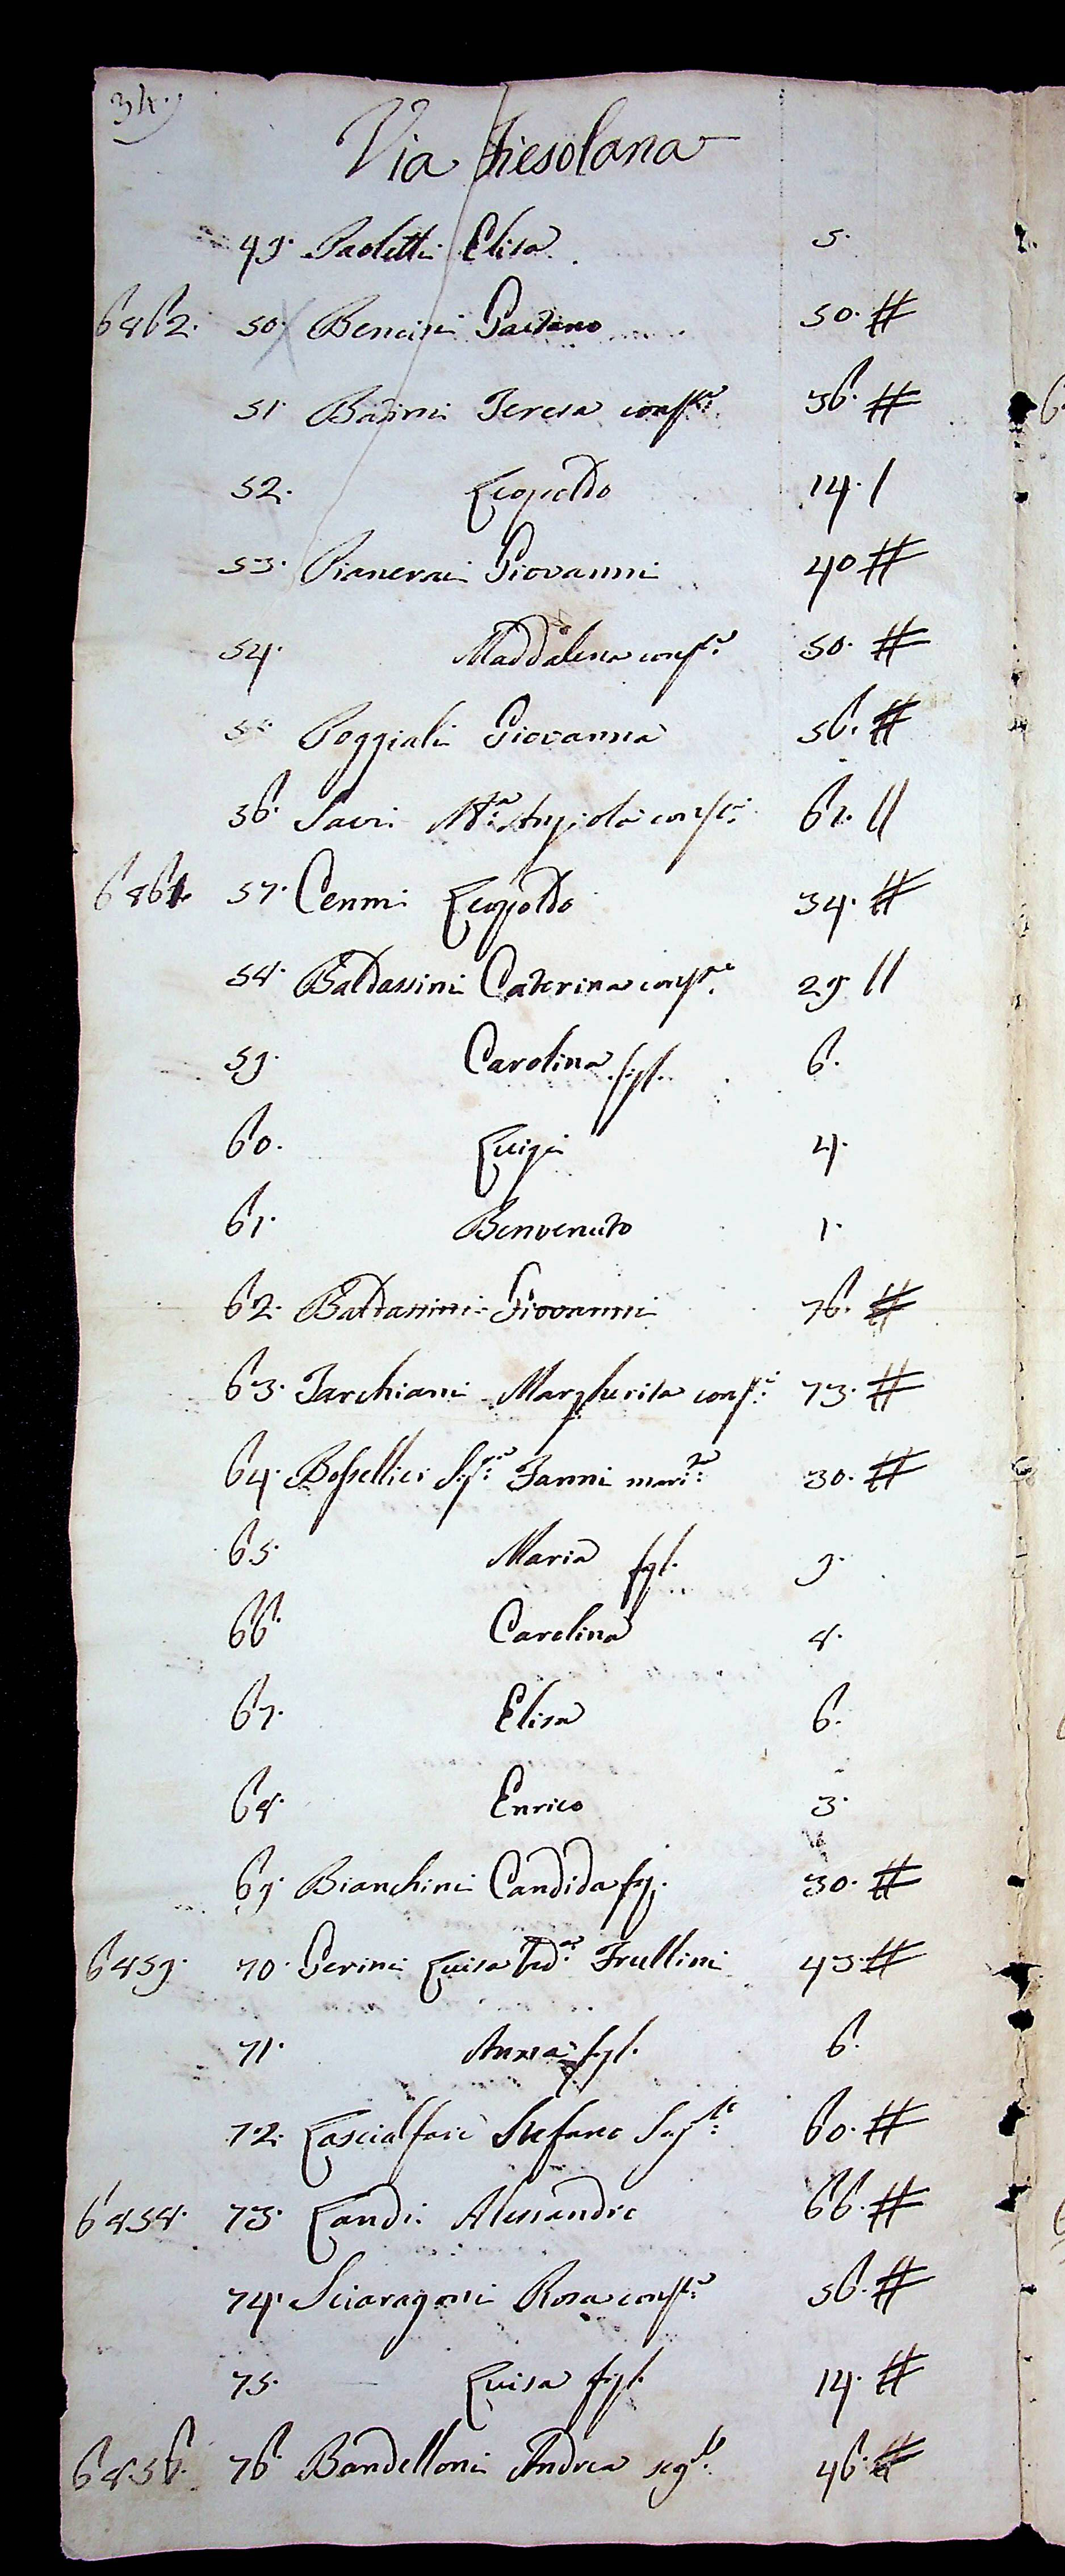 34.
Via Fiesolana
49. Paoletti Elisa. 5.
6862. 50. Bencini Gaetano 50. #
51. Barini Teresa conste. 36. #
52. Leopoldo 14. /
53. Pianerai Giovanni 40 #
54. Maddalena conste. 50. #
55. Poggiali Giovanna 56. #
56. Sacri Ma. Angiola conste. 62. //
6861. 57. Cenni Leopoldo 34. #
58. Baldassini Caterina conste. 29. //
59. Carolina figl. 6.
60. Luigi 4.
61. Benvenuto 1.
62. Baldassini Giovanni 76. #
63. Tarchiani Margherita conste. 73. #
64. Fanni marta. 30. #
65. Maria figl. 9.
66. Carolina 8.
67. Elisa 6.
68. Enrico 3.
69. Bianchini Candida fig. 30. #
6859. 70. Gerini Luisa Veda. Frullini 43. #
71. Anna figl. 6.
72. Lascialfare Stefano Segte. 60. #
6858. 73. Landi Alessandro 66. #
74. Sciaragoni Rosa conste. 56. #
75. Luisa figl. 14. #
6856. 76 Bandelloni Andrea segto. 46. #